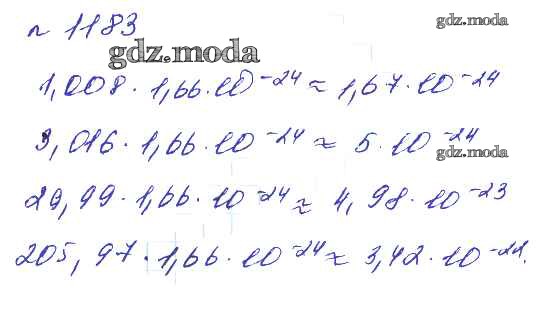 n 1183
gdz.moda
gdz.moda
1,008 · 1,66 · 10⁻²⁴ ≈ 1,67 · 10⁻²⁴
3,016 · 1,66 · 10⁻²⁴ ≈ 5 · 10⁻²⁴
gdz.moda
29,99 · 1,66 · 10⁻²⁴ ≈ 4,98 · 10⁻²³
205,97 · 1,66 · 10⁻²⁴ ≈ 3,42 · 10⁻²².